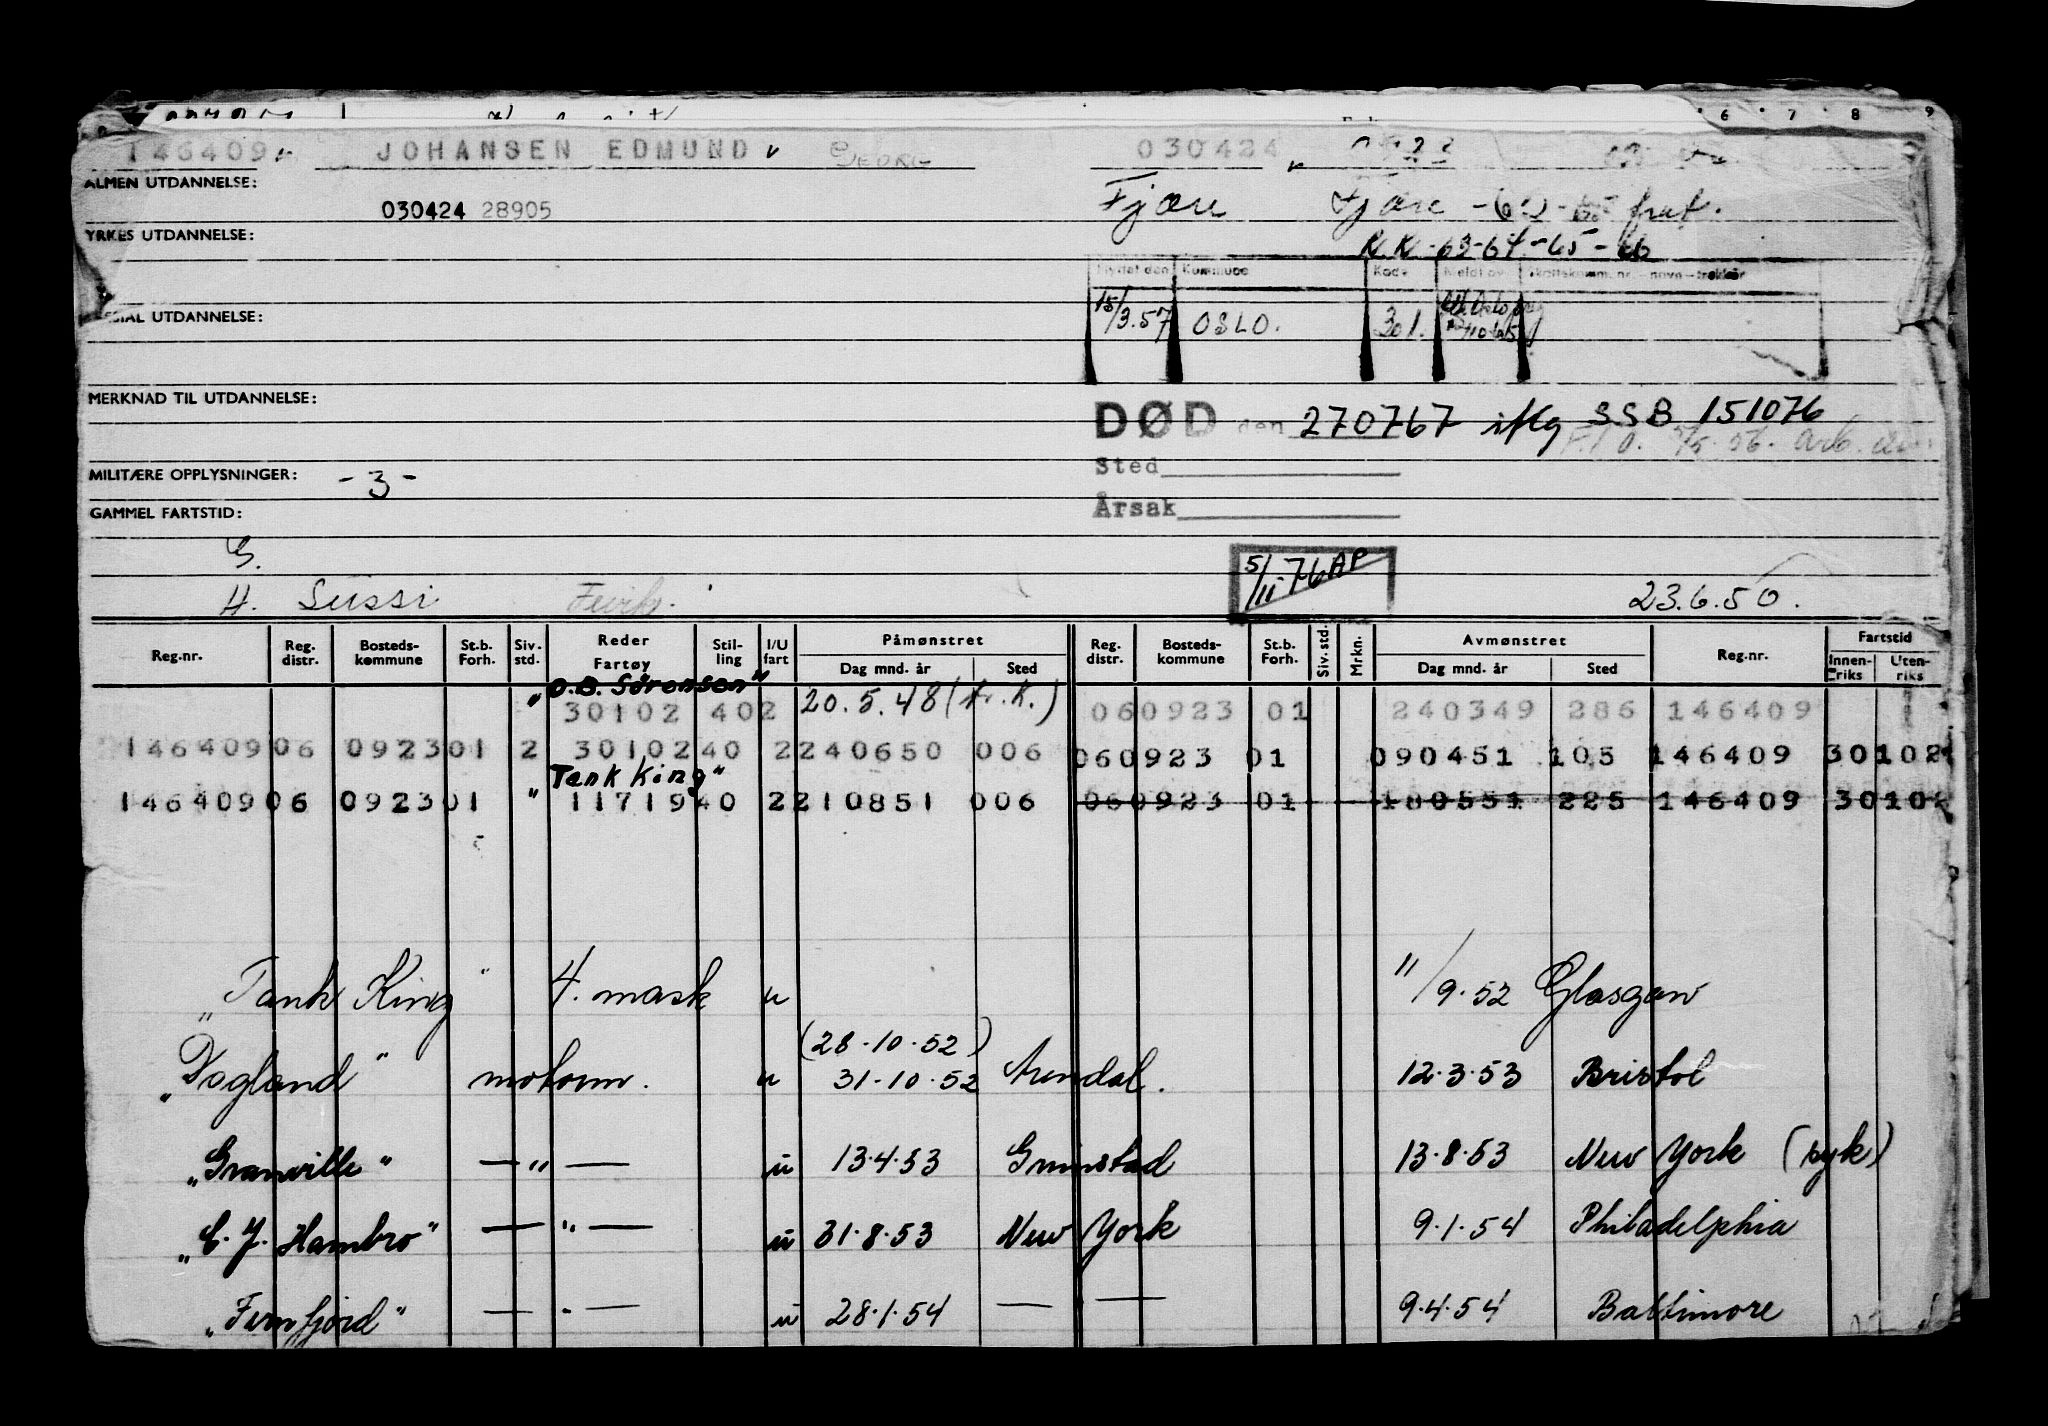 6 7 8 9
146409 JOHANSEN EDMUND 030424
ALMEN UTDANNELSE:
030424 28905
Fjære Fjære
YRKES UTDANNELSE:
K.K. -63-64-65-66
Kommune Kode
15/3.57 OSLO. 301.
UTDANNELSE:
MERKNAD TIL UTDANNELSE:
DØD den 270767 iflg SSB 151076
Sted
MILITÆRE OPPLYSNINGER: -3-
Årsak
GAMMEL FARTSTID:
G.
5/11-76 AP
H. Sussi 23.6.50.
Reg.nr. Reg. distr. Bosteds-kommune St.b. Forh. Siv. std. Reder Fartøy Stil-ling I/U fart Påmønstret Dag mnd. år Sted Reg. distr. Bosteds-kommune St.b. Forh. Siv. std. Mrkn. Avmønstret Dag mnd. år Sted Reg.nr. Fartstid Innen-riks Uten-riks
"O.B. Sørensen"
30102 402 20.5.48 060923 01 240349 286 146409
146409 06 0923 01 2 30102 40 2 240650 006 060923 01 090451 105 146409 30102
"Tank King"
146409 06 0923 01 11719 40 2 210851 006 060923 01 180551 225 146409 30102
"Tank King" 4. mask u 11/9.52 Glasgow
(28.10.52)
"Dagland" motorm. u 31.10.52 Arendal. 12.3.53 Bristol
"Granville" —"— u 13.4.53 Grimstad 13.8.53 New York (syk)
"C.J. Hambro" —"— u 31.8.53 New York 9.1.54 Philadelphia
"Fernfjord" —"— u 28.1.54 — — 9.4.54 Baltimore